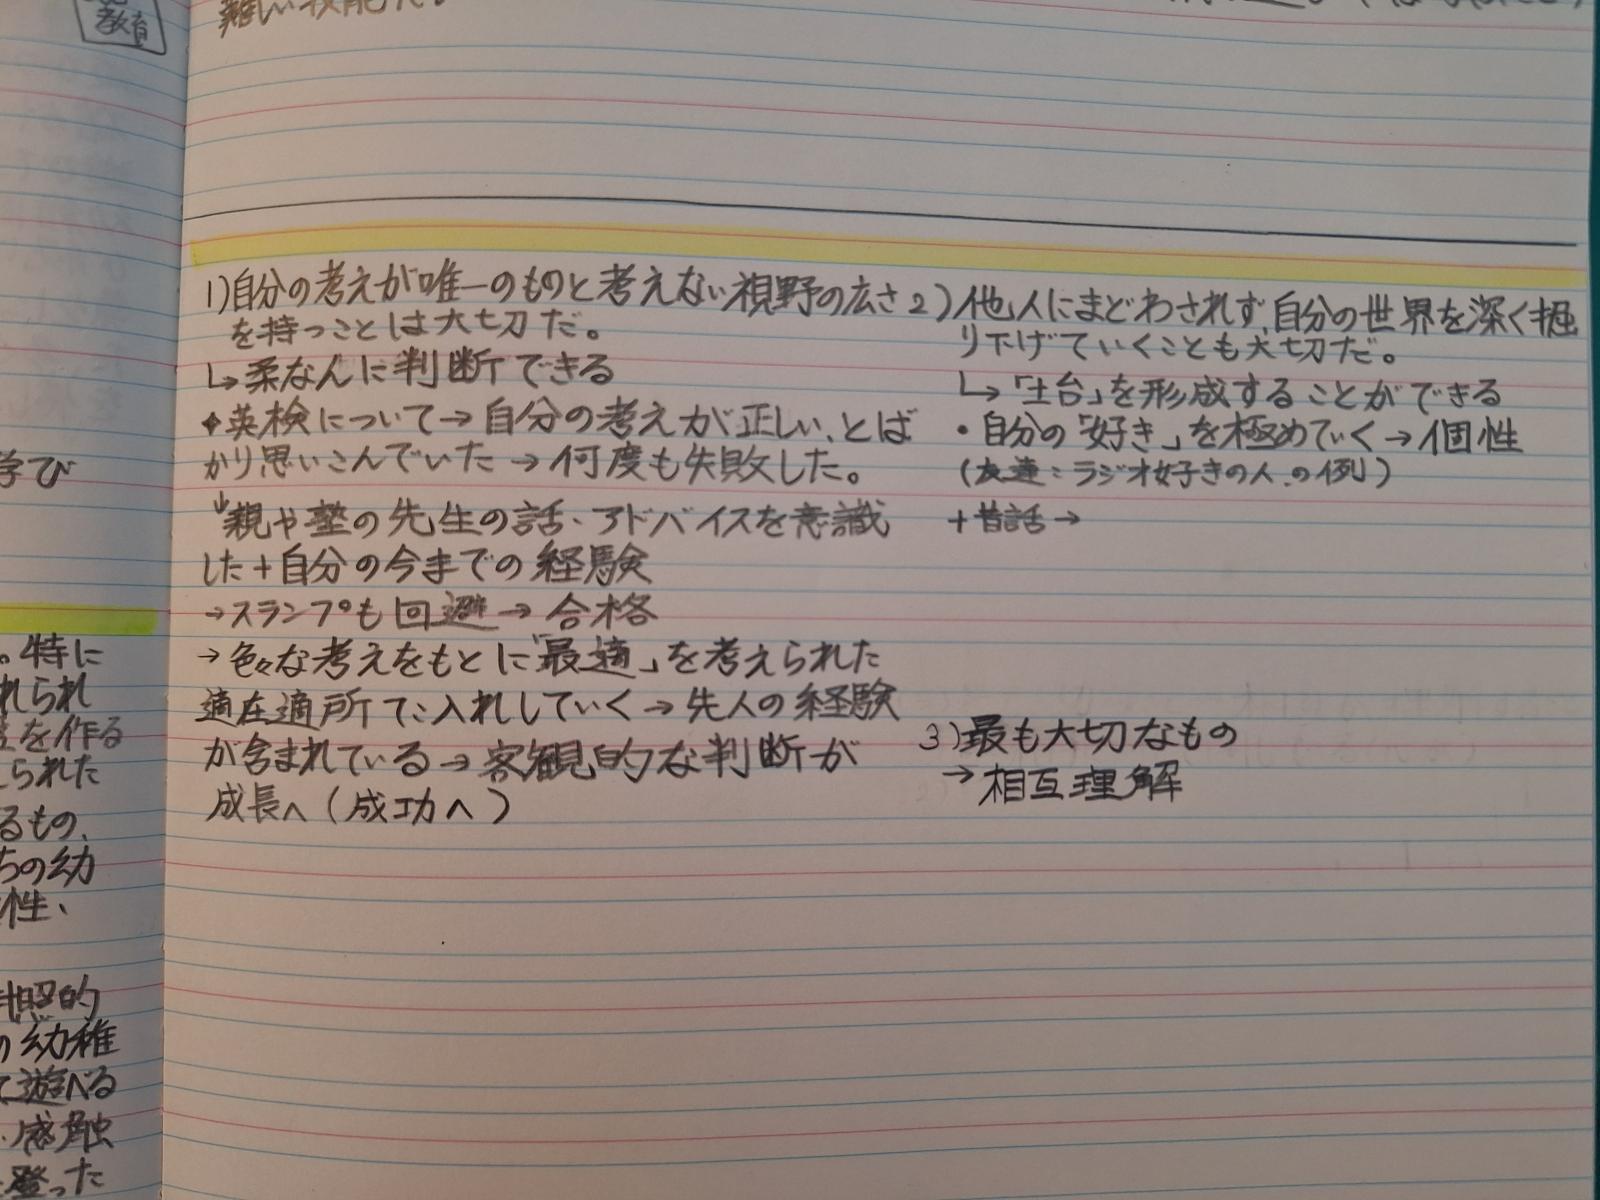 教育
難しい技能だ。
1)自分の考えが唯一のものと考えない視野の広さ
を持つことは大切だ。
↳柔なんに判断できる
◆英検について→自分の考えが正しい、とば
かり思いこんでいた→何度も失敗した。
↓親や塾の先生の話・アドバイスを意識
した+自分の今までの経験
→スランプも回避→合格
→色々な考えをもとに「最適」を考えられた
適在適所で入れしていく→先人の経験
が含まれている→客観的な判断が
成長へ(成功へ)
2)他人にまどわされず、自分の世界を深く掘
り下げていくことも大切だ。
↳「土台」を形成することができる
・自分の「好き」を極めていく→個性
(友達:ラジオ好きの人の例)
+昔話→
3)最も大切なもの
→相互理解
学び
。特に
れられ
を作る
られた
るもの、
ちの幼
性、
照的
幼稚
遊べる
感触
登った